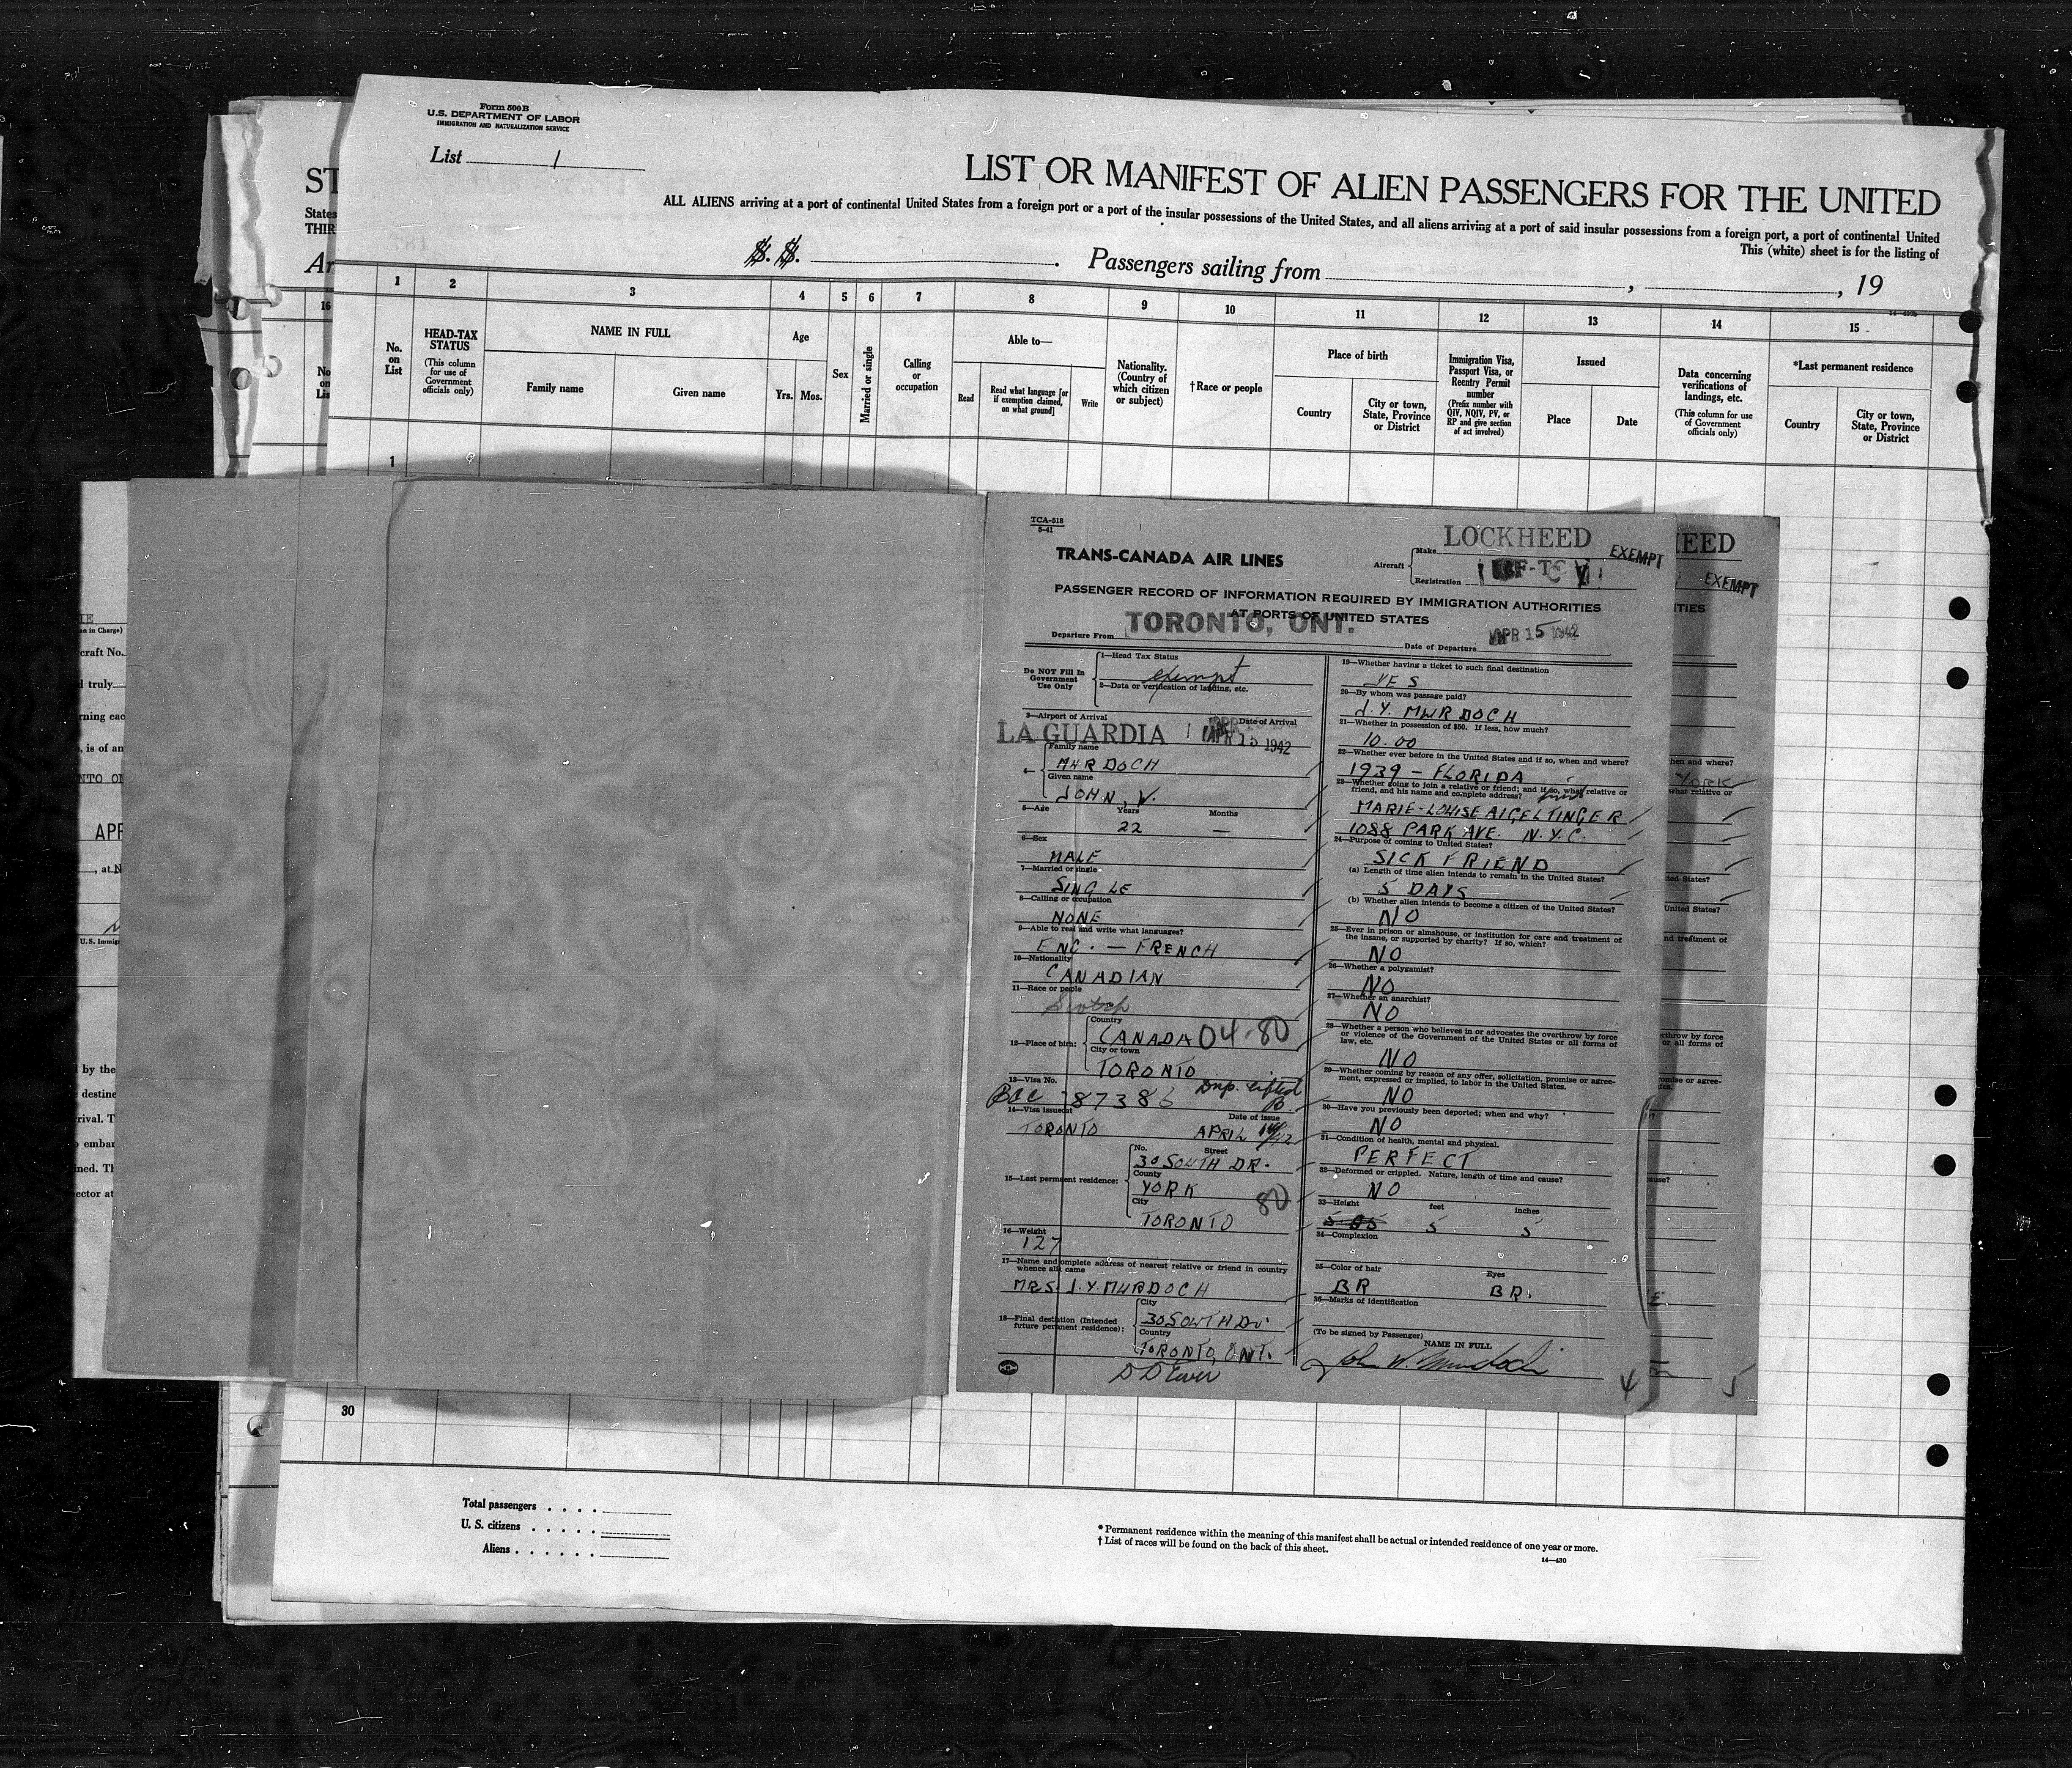 Form 500B
U.S. DEPARTMENT OF LABOR
IMMIGRATION AND NATURALIZATION SERVICE
List 1
LIST OR MANIFEST OF ALIEN PASSENGERS FOR THE UNITED
ST
ALL ALIENS arriving at a port of continental United States from a foreign port or a port of the insular possessions of the United States, and all aliens arriving at a port of said insular possessions from a foreign port, a port of continental United
States
THIR
This (white) sheet is for the listing of
Ar
S. S. . Passengers sailing from , , 19
1 2 3 4 5 6 7 8 9 10 11 12 13 14 15
16
No. on List
HEAD-TAX STATUS
(This column for use of Government officials only)
NAME IN FULL
Family name Given name
Age
Yrs. Mos.
Sex
Married or single
Calling or occupation
Able to—
Read
Read what language [or if exemption claimed, on what ground]
Write
Nationality. (Country of which citizen or subject)
†Race or people
Place of birth
Country
City or town, State, Province or District
Immigration Visa, Passport Visa, or Reentry Permit number
(Prefix number with QIV, NQIV, PV, or RP and give section of act involved)
Issued
Place Date
Data concerning verifications of landings, etc.
(This column for use of Government officials only)
*Last permanent residence
Country
City or town, State, Province or District
No
on
Lis
1
TCA-518
5-41
TRANS-CANADA AIR LINES
Aircraft
Make LOCKHEED
Registration
EXEMPT
EED
EXEMPT
PASSENGER RECORD OF INFORMATION REQUIRED BY IMMIGRATION AUTHORITIES
AT PORTS OF UNITED STATES
Departure From TORONTO, ONT.
Date of Departure APR 15 1942
Do NOT Fill In
Government
Use Only
1—Head Tax Status
exempt
2—Data or verification of landing, etc.
3—Airport of Arrival Date of Arrival
LA GUARDIA APR 15 1942
4—
Family name
MURDOCH
Given name
JOHN, W.
5—Age Years Months
22 —
6—Sex
MALE
7—Married or single
SINGLE
8—Calling or occupation
NONE
9—Able to read and write what languages?
ENG. — FRENCH
10—Nationality
CANADIAN
11—Race or people
Scotch
12—Place of birth:
Country
CANADA 04-80
City or town
TORONTO
13—Visa No.
87386
14—Visa issued at Date of issue
TORONTO APRIL 14/42
15—Last permanent residence:
No. Street
30 SOUTH DR.
County
YORK 80
City
TORONTO
16—Weight
127
17—Name and complete address of nearest relative or friend in country
whence alien came
MRS. J.Y. MURDOCH
18—Final destination (Intended
future permanent residence):
City
30 SOUTH DR
Country
TORONTO, ONT.
19—Whether having a ticket to such final destination
YES
20—By whom was passage paid?
J. Y. MURDOCH
21—Whether in possession of $50. If less, how much?
10.00
22—Whether ever before in the United States and if so, when and where?
1939 — FLORIDA
23—Whether going to join a relative or friend; and if so, what relative or
friend, and his name and complete address?
friend
MARIE-LOUISE AIGELTINGER
1088 PARK AVE. N.Y.C.
24—Purpose of coming to United States?
SICK FRIEND
(a) Length of time alien intends to remain in the United States?
5 DAYS
(b) Whether alien intends to become a citizen of the United States?
NO
25—Ever in prison or almshouse, or institution for care and treatment of
the insane, or supported by charity? If so, which?
NO
26—Whether a polygamist?
NO
27—Whether an anarchist?
NO
28—Whether a person who believes in or advocates the overthrow by force
or violence of the Government of the United States or all forms of
law, etc.
NO
29—Whether coming by reason of any offer, solicitation, promise or agree-
ment, expressed or implied, to labor in the United States.
NO
30—Have you previously been deported; when and why?
NO
31—Condition of health, mental and physical.
PERFECT
32—Deformed or crippled. Nature, length of time and cause?
NO
33—Height feet inches
5 5
34—Complexion
35—Color of hair Eyes
BR BR.
36—Marks of identification
(To be signed by Passenger)
NAME IN FULL
John W. Murdoch
4
5
30
Total passengers . . . .
U. S. citizens . . . . .
Aliens . . . . . .
* Permanent residence within the meaning of this manifest shall be actual or intended residence of one year or more.
† List of races will be found on the back of this sheet.
14—430